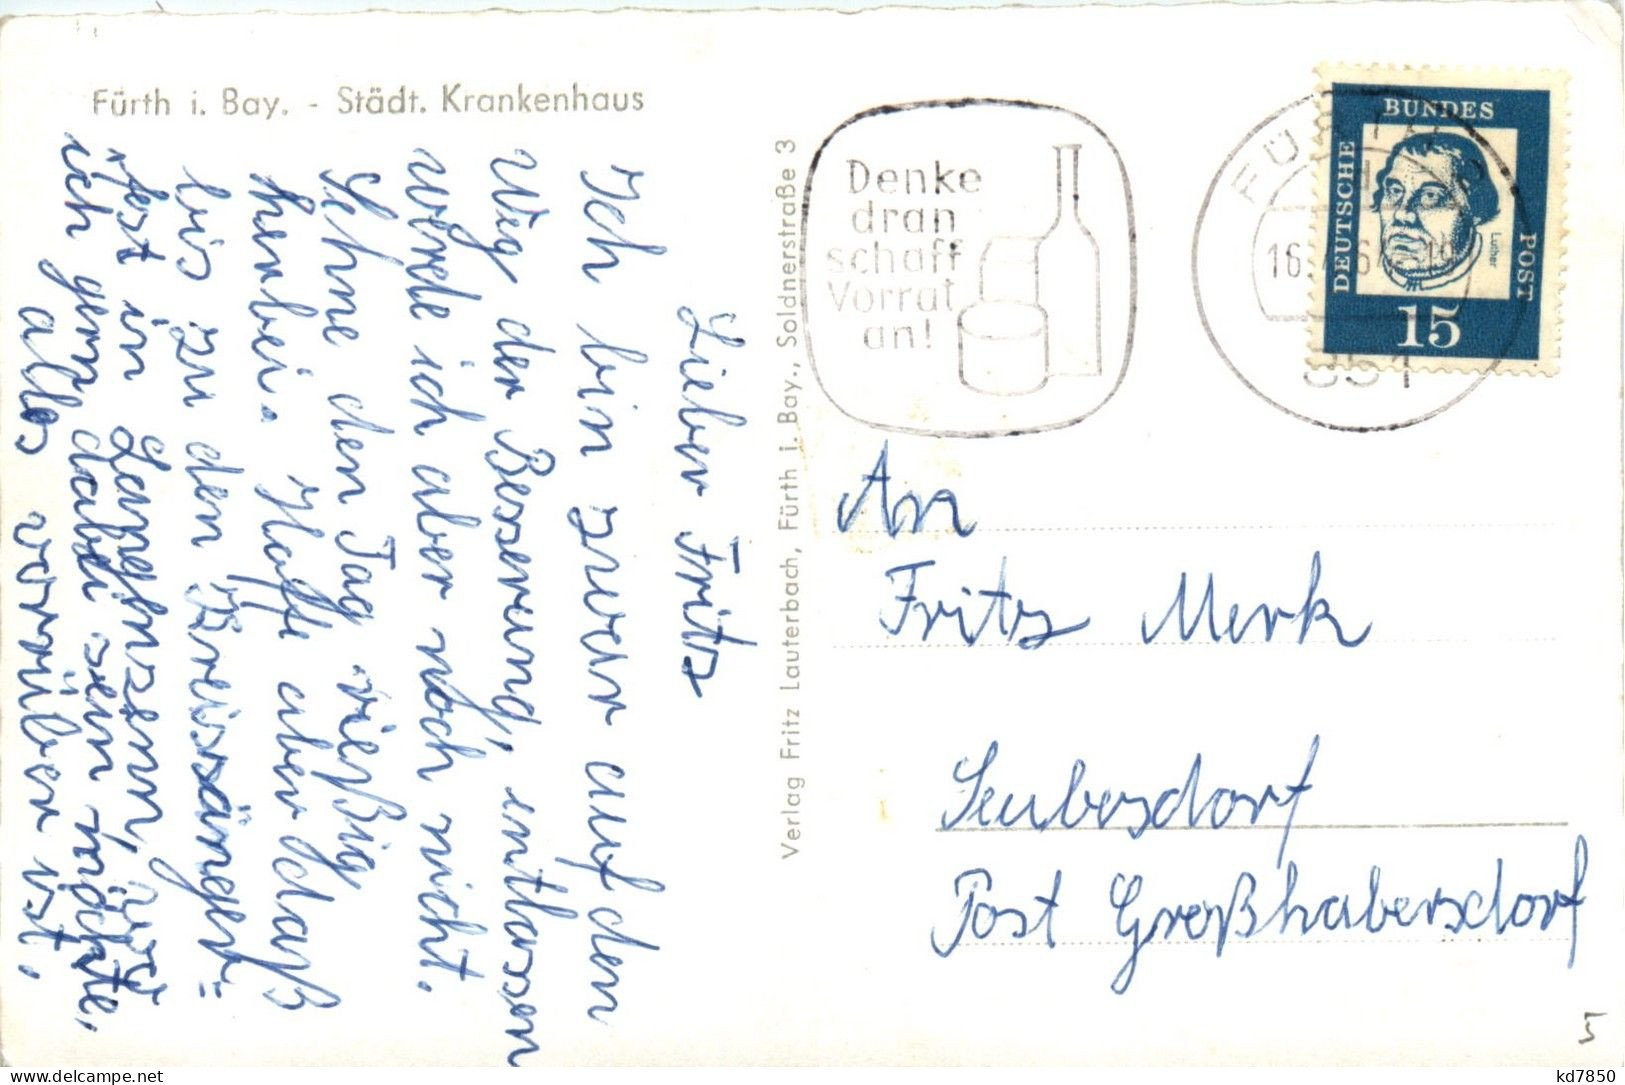 Fürth i. Bay. - Städt. Krankenhaus
Lieber Fritz
Ich bin zwar auf dem
Weg der Besserung, entlassen
werde ich aber noch nicht.
Sehne den Tag rießig
herbei. Hoffe aber daß
bis zu den Kreissänger=
fest in Langenzenn, wo
ich gern dabei sein möchte,
alles vorrüber ist.
Verlag Fritz Lauterbach, Fürth i. Bay., Soldnerstraße 3
Denke
dran
schaff
Vorrat
an!
FÜRTH
851
DEUTSCHE
BUNDES
POST
Luther
15
An
Fritz Merk
Seubersdorf
Post Großhabersdorf
5
kd7850